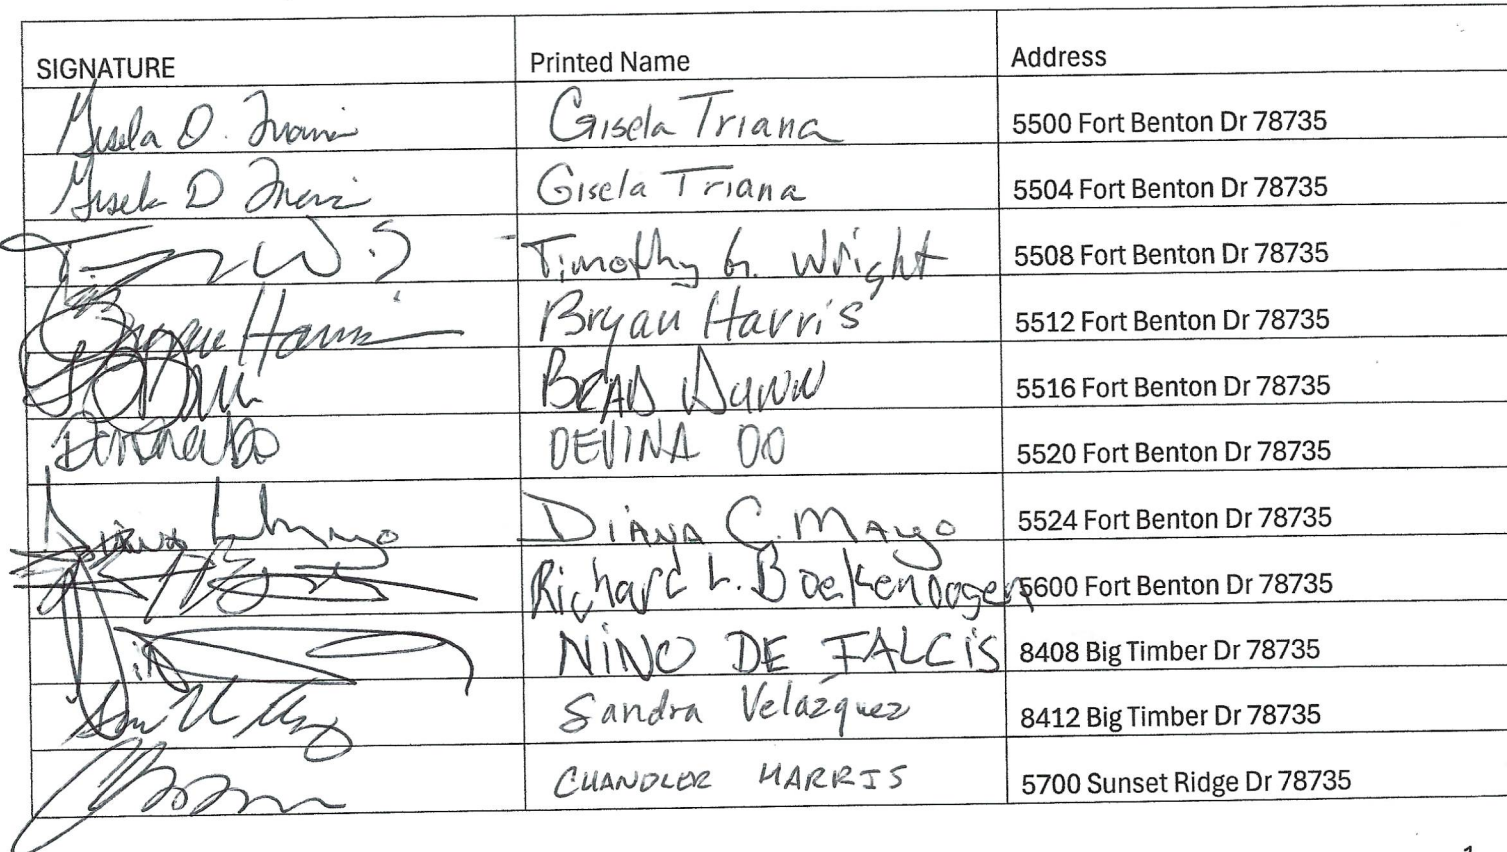 SIGNATURE Printed Name Address
Gisela D. Triana Gisela Triana 5500 Fort Benton Dr 78735
Gisela D Triana Gisela Triana 5504 Fort Benton Dr 78735
Timothy G. Wright 5508 Fort Benton Dr 78735
Bryan Harris Bryan Harris 5512 Fort Benton Dr 78735
BRAD DUNN 5516 Fort Benton Dr 78735
DEVINA DO 5520 Fort Benton Dr 78735
Diana C. Mayo 5524 Fort Benton Dr 78735
Richard L. Boekenoogen 5600 Fort Benton Dr 78735
NiNO DE FALCiS 8408 Big Timber Dr 78735
Sandra Velazquez 8412 Big Timber Dr 78735
CHANDLER HARRIS 5700 Sunset Ridge Dr 78735
1